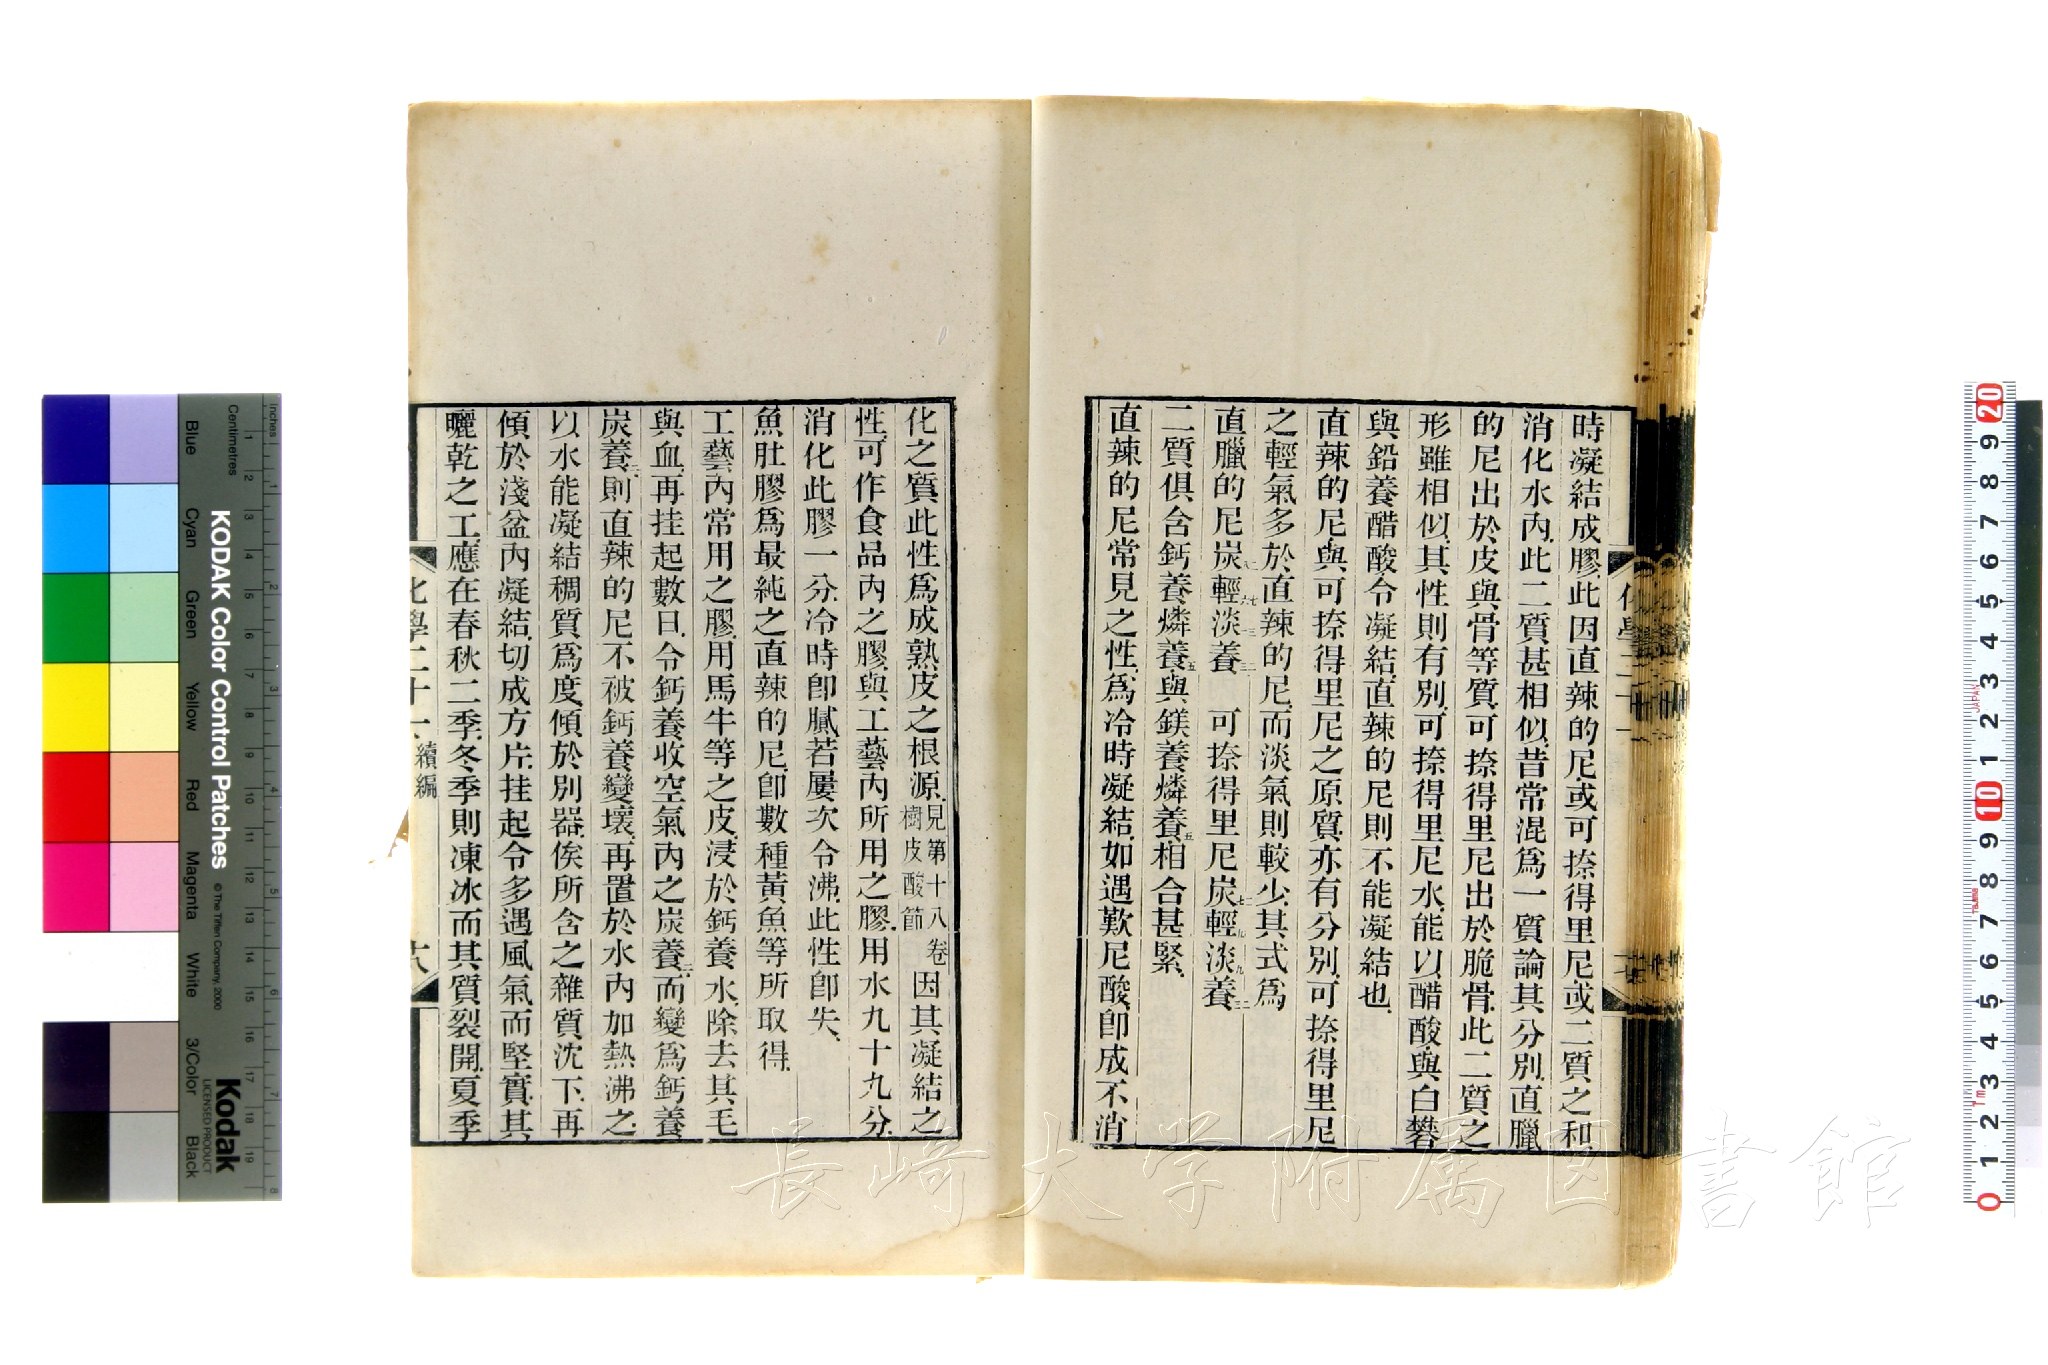 時凝結成膠此因直辣的尼或可捺得里尼或二質之和
消化水內此二質甚相似昔常混爲一質論其分別直臘
的尼出於皮與骨等質可捺得里尼出於脆骨此二質之
形雖相似其性則有別可捺得里尼水能以醋酸與白礬
與鉛養醋酸令凝結直辣的尼則不能凝結也
直辣的尼與可捺得里尼之原質亦有分別可捺得里尼
之輕氣多於直辣的尼而淡氣則較少其式爲
直臘的尼炭輕淡養 可捺得里尼炭輕淡養
二質俱含鈣養燐養五與鎂養燐養五相合甚緊
直辣的尼常見之性爲冷時凝結如遇歎尼酸卽成不消
化之質此性爲成熟皮之根源見第十八卷樹皮酸節因其凝結之
性可作食品內之膠與工藝內所用之膠用水九十九分
消化此膠一分冷時卽膩若屢次令沸此性卽失
魚肚膠爲最純之直辣的尼卽數種黃魚等所取得
工藝內常用之膠用馬牛等之皮浸於鈣養水除去其毛
與血再挂起數日令鈣養收空氣內之炭養二而變爲鈣養
炭養二則直辣的尼不被鈣養變壞再置於水內加熱沸之
以水能凝結稠質爲度傾於別器俟所含之雜質沈下再
傾於淺盆內凝結切成方片挂起令多遇風氣而堅實其
曬乾之工應在春秋二季冬季則凍冰而其質裂開夏季
化學二十一 續編 十八
KODAK Color Control Patches
© The Tiffen Company, 2000
Kodak
LICENSED PRODUCT
Inches
Centimetres
Blue
Cyan
Green
Yellow
Red
Magenta
White
3/Color
Black
長崎大学附属図書館